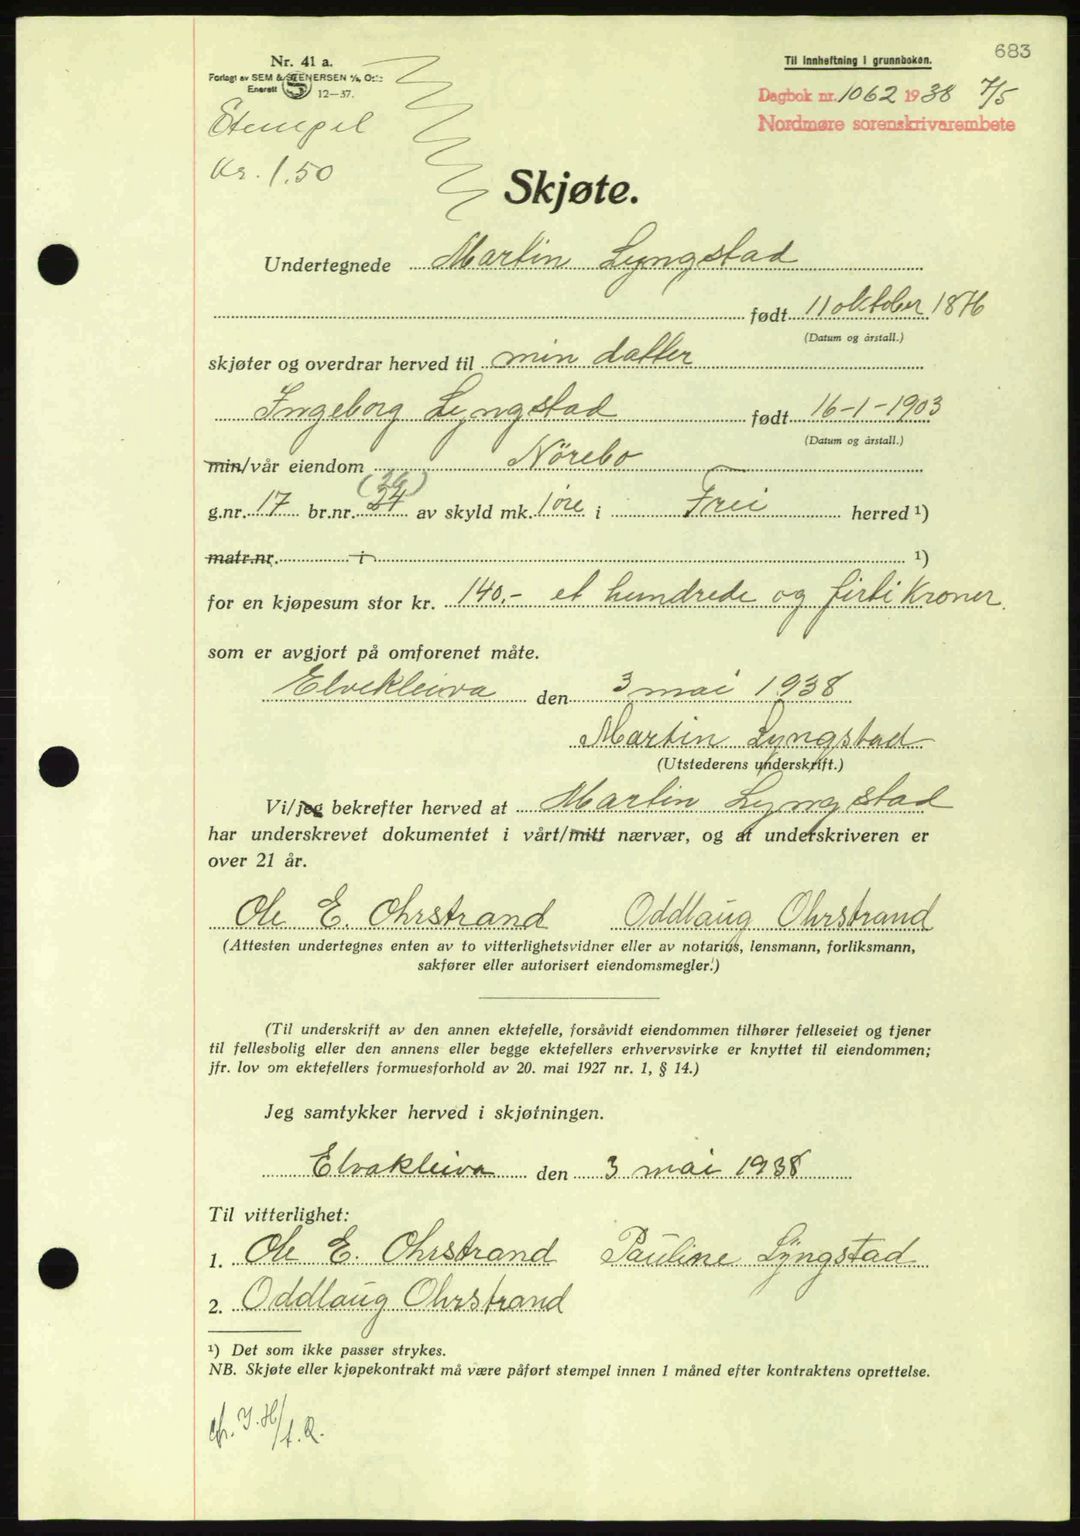 683
Nr. 41 a.
Til innheftning i grunnboken.
Forlagt av SEM & STENERSEN A/S, Oslo
Enerett S 12—37.
Dagbok nr. 1062 1938 7/5
Nordmøre sorenskrivarembete
Stempel
Kr. 1.50
Skjøte.
Undertegnede Martin Lyngstad
født 11 oktober 1876
(Datum og årstall.)
skjøter og overdrar herved til min datter
Ingeborg Lyngstad født 16-1-1903
(Datum og årstall.)
min/vår eiendom Nörebo
(26)
g.nr. 17 br.nr. 24 av skyld mk. 1 øre i Frei herred ¹)
matr.nr. i ¹)
for en kjøpesum stor kr. 140,- et hundrede og firti Kroner.
som er avgjort på omforenet måte.
Elvekleiva den 3 mai 1938
Martin Lyngstad
(Utstederens underskrift.)
Vi/jeg bekrefter herved at Martin Lyngstad
har underskrevet dokumentet i vårt/mitt nærvær, og at underskriveren er
over 21 år.
Ole E. Ohrstrand Oddlaug Ohrstrand
(Attesten undertegnes enten av to vitterlighetsvidner eller av notarius, lensmann, forliksmann,
sakfører eller autorisert eiendomsmegler.)
(Til underskrift av den annen ektefelle, forsåvidt eiendommen tilhører felleseiet og tjener
til fellesbolig eller den annens eller begge ektefellers erhvervsvirke er knyttet til eiendommen;
jfr. lov om ektefellers formuesforhold av 20. mai 1927 nr. 1, § 14.)
Jeg samtykker herved i skjøtningen.
Elvakleiva den 3 mai 1938
Til vitterlighet:
1. Ole E. Ohrstrand Pauline Lÿngstad
2. Oddlaug Ohrstrand
¹) Det som ikke passer strykes.
NB. Skjøte eller kjøpekontrakt må være påført stempel innen 1 måned efter kontraktens oprettelse.